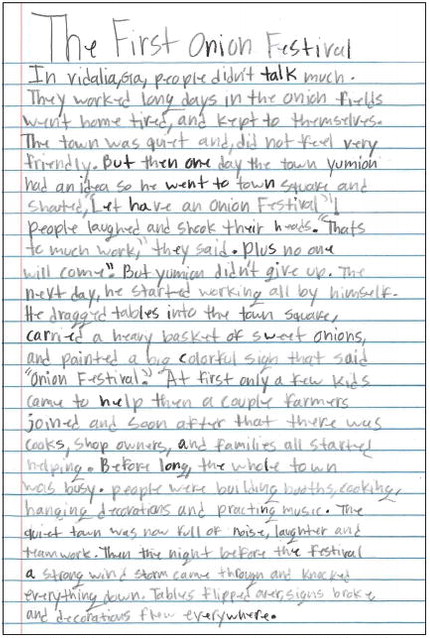 The First Onion Festival
In vidalia,Ga, people didn't talk much.
They worked long days in the onion fields
went home tired, and kept to themselves.
The town was quiet and, did not feel very
friendly. But then one day the town yumion
had an idea so he went to town square and
shouted,"Let have an Onion Festival"!
people laughed and shook their heads."Thats
to much work," they said. plus no one
will come". But yumion didn't give up. The
next day, he started working all by himself.
He dragged tables into the town square,
carried a heavy basket of sweet onions,
and painted a big colorful sign that said
"Onion Festival." At first only a few kids
came to help then a couple farmers
joined and soon after that there was
cooks, shop owners, and families all started
helping. Before long, the whole town
was busy. people were building booths, cooking,
hanging decorations and practing music. The
quiet town was now full of noise, laughter and
teamwork. Then the night before the festival
a strong wind storm came through and knocked
everything down. Tables flipped over, signs broke
and decorations flew everywhere.